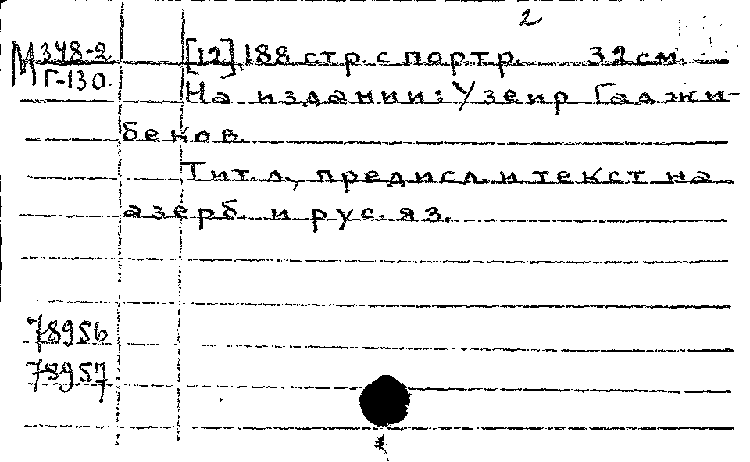 2
М 348-2 [12], 188 стр. с портр. 32 см.
Г-130.
На издании: Узеир Гаджи-
беков.
Тит. л., предисл. и текст на
азерб. и рус. яз.
78956
78957